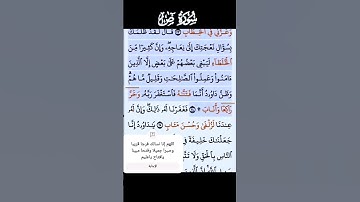 سُورَةُ صٓ
وَعَزَّنِي فِي ٱلْخِطَابِ ٢٣ قَالَ لَقَدْ ظَلَمَكَ
بِسُؤَالِ نَعْجَتِكَ إِلَىٰ نِعَاجِهِۦ وَإِنَّ كَثِيرًا مِّنَ
ٱلْخُلَطَآءِ لَيَبْغِي بَعْضُهُمْ عَلَىٰ بَعْضٍ إِلَّا ٱلَّذِينَ
ءَامَنُوا۟ وَعَمِلُوا۟ ٱلصَّٰلِحَٰتِ وَقَلِيلٌ مَّا هُمْ
وَظَنَّ دَاوُۥدُ أَنَّمَا فَتَنَّٰهُ فَٱسْتَغْفَرَ رَبَّهُۥ وَخَرَّ
رَاكِعًا وَأَنَابَ ۩ ٢٤ فَغَفَرْنَا لَهُۥ ذَٰلِكَ وَإِنَّ لَهُۥ
عِندَنَا لَزُلْفَىٰ وَحُسْنَ مَـَٔابٍ ٢٥ يَٰدَاوُۥدُ إِنَّا
جَعَلْنَٰكَ خَلِيفَةً فِي
ٱلنَّاسِ بِٱلْحَقِّ وَلَا
اللهم إنا نسألك فرجا قريبا
وصبرا جميلا وفتحا مبينا